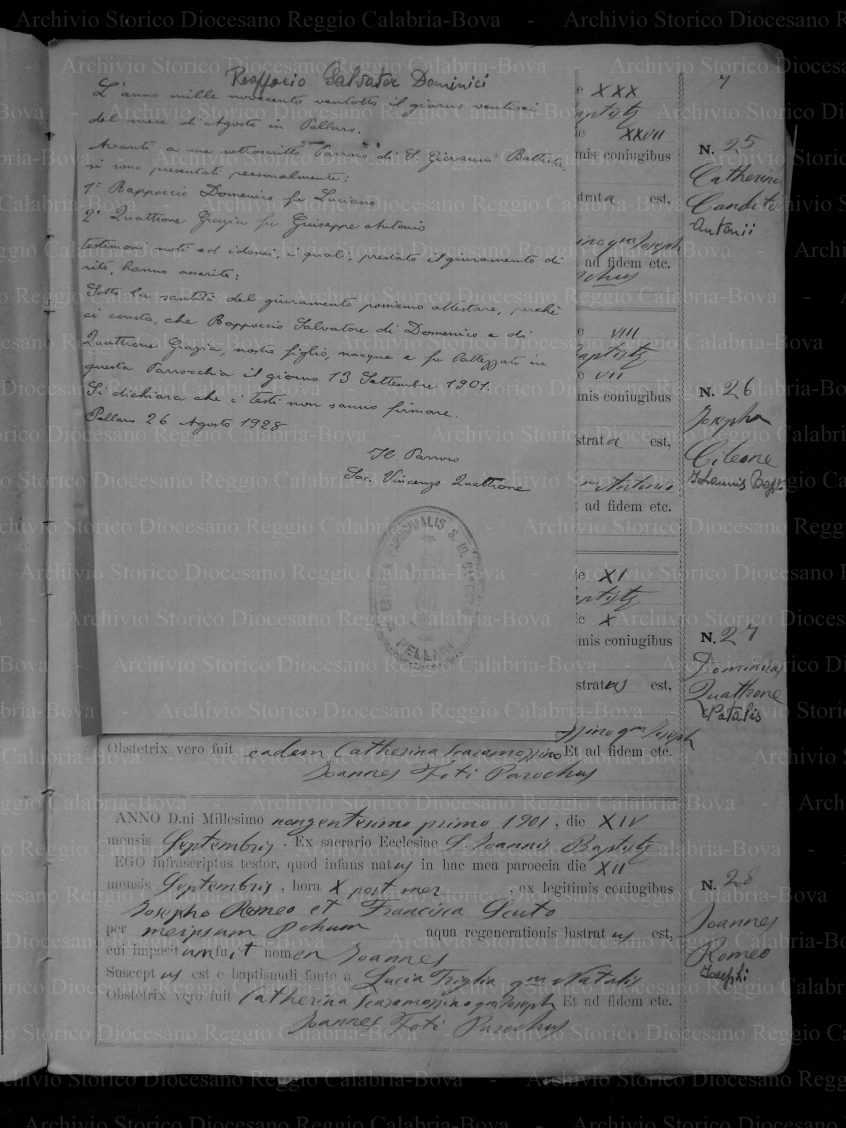 Rappocio Salvator Dominici
L'anno mille novecento ventotto il giorno ventisei
del mese di Agosto in Pellaro.
Avanti a me sottoscritto Parroco di S. Giovanni Battista,
si sono presentati personalmente:
1° Rappoccio Domenico fu Luciano
2° Quattrone Grazia fu Giuseppe Antonio
testimoni noti ed idonei, i quali, prestato il giuramento di
rito, hanno asserito:
Sotto la santità del giuramento possiamo attestare, perché
ci consta, che Rappoccio Salvatore di Domenico e di
Quattrone Grazia, nostro figlio, nacque e fu battezzato in
questa Parrocchia il giorno 13 Settembre 1901.
Si dichiara che i testi non sanno firmare.
Pellaro 26 Agosto 1928
Il Parroco
Sac. Vincenzo Quattrone
PELLARO
7
e XXX
aptistę
e XXVII
imis coniugibus
strata est,
ad fidem etc.
N. 25
Catherina
Candito
Antonii
e VIII
aptistę
e VII
imis coniugibus
strata est,
Antonio
ad fidem etc.
N. 26
Josepha
Cilione
Johannis Bapt.
te XI
aptistę
e X
mis coniugibus
stratus est,
N. 27
Dominicus
Quattrone
Natalis
ssino qm Joseph
Obstetrix vero fuit eadem Catherina Scaramozzino Et ad fidem etc.
Joannes Foti Parochus
ANNO D.ni Millesimo nongentesimo primo 1901, die XIV
mensis Septembris. Ex sacrario Ecclesiae S. Joannis Baptistę
EGO infrascriptus testor, quod infans natus in hac mea paroecia die XII
mensis Septembris, hora X post mer , ex legitimis coniugibus
Josepho Romeo et Francisca Scuto
per meipsum Pchum aqua regenerationis lustratus est,
cui impositum fuit nomen Joannes
Susceptus est e baptismali fonte a Lucia Triglia qm Natalis
Obstetrix vero fuit Catherina Scaramozzino qm Joseph Et ad fidem etc.
Joannes Foti Parochus
N. 28
Joannes
Romeo
Josephi
Archivio Storico Diocesano Reggio Calabria-Bova